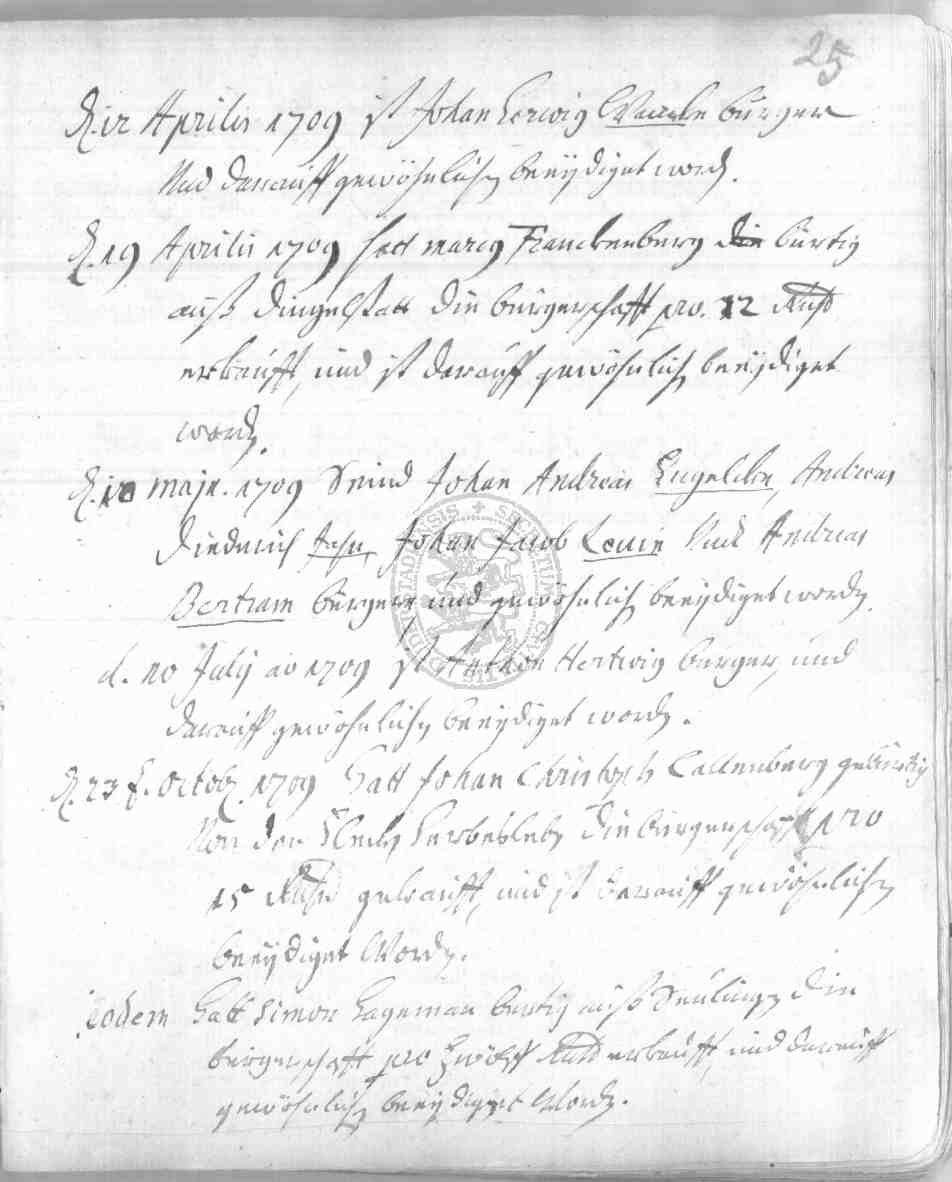 25
d. 12 Aprilis 1709 ist Johan Herwig bürger
Und darauff gewöhnlich beeydiget word.
d. 19 Aprilis 1709 hatt Franckenberg die bürtig
auß Dingelstatt die bürgerschafft pro. 12 Rthlr
erkaufft, und ist darauff gewöhnlich beeydiget
word.
d. Maji. 1709 Seind Johan Andreas Engelcke, Andreas
Diederich Jahn, Johan Jacob Und Andreas
Bertram bürger, und gewöhnlich beeydiget worden
d. 10 July ao 1709 ist Hertwig bürger, und
darauff gewöhnlich beeydiget worden.
d. 23 t. Octob. 1709 Hatt Johan Christoph Callenberg gebürtig
Von den Fleck Herbesleb die bürgerschafft pro
15 Rthlr gekaufft, und ist darauff gewöhnlich
beeydiget Worden.
eodem Hatt Simon Hageman bürtig auß die
bürgerschafft pro Zwölff Rthlr erkaufft, und darauff
gewöhnlich beeydiget Worden.